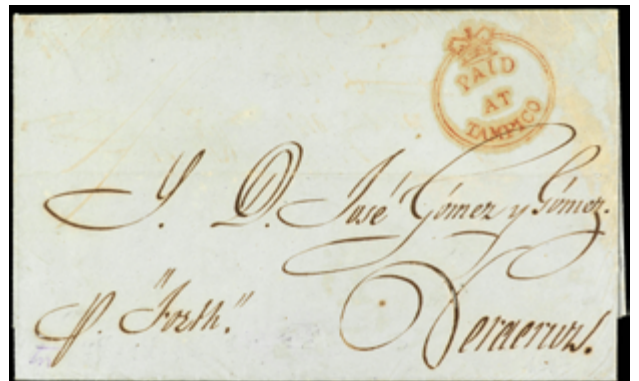 PAID
AT
TAMPICO
S. D. José Gómez y Gómez.
p. "Forth".
Veracruz.